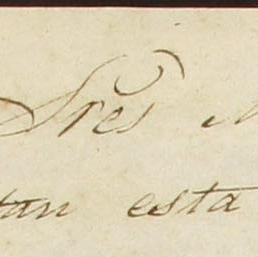 Sres
tan esta